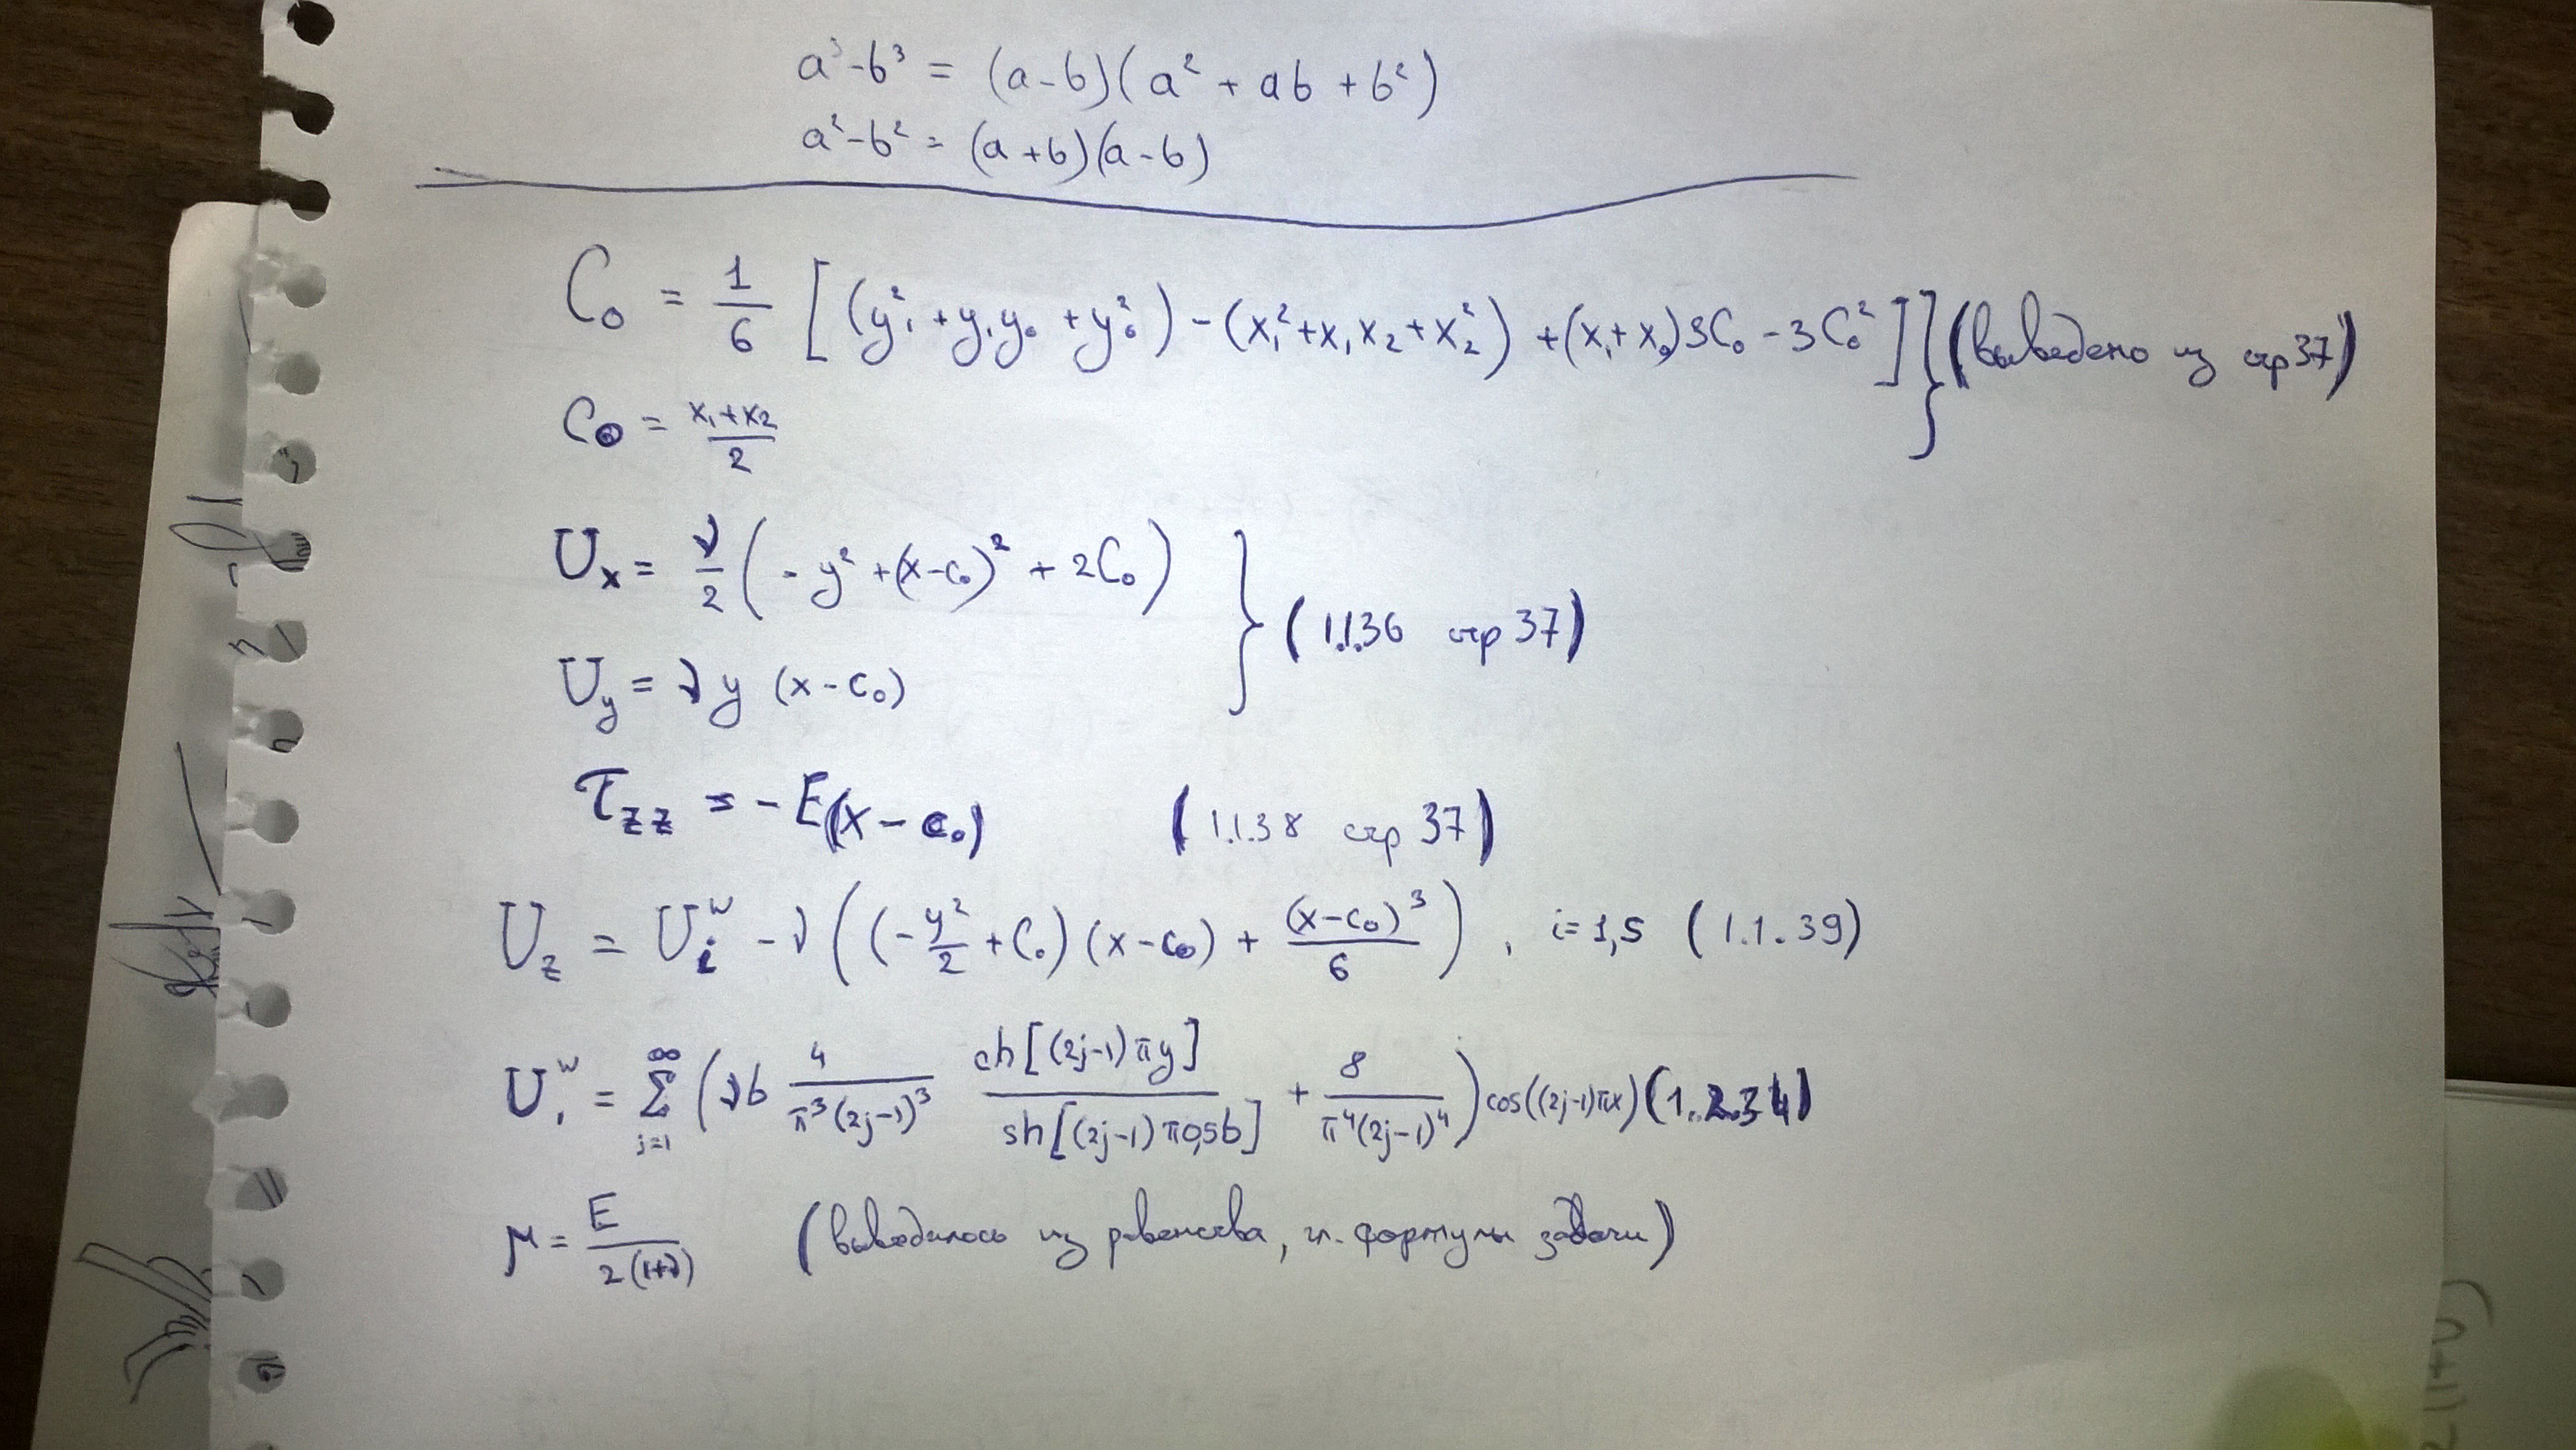 a³-b³ = (a-b)(a² + ab + b²)
a²-b² = (a+b)(a-b)
C₀ = 1/6 [(y₁² + y₁y₀ + y₀²) - (x₁² + x₁x₂ + x₂²) + (x₁ + x₀)3C₀ - 3C₀²] } (выведено из стр 37)
C₀ = (x₁+x₂)/2
Uₓ = ν/2 (-y² + (x-c₀)² + 2C₀)
} (1.1.36 стр 37)
U_y = ν y (x-c₀)
τ_zz = -E(x-c₀) (1.1.38 стр 37)
U_z = U_i^w - ν((-y²/2 + C₀)(x-c₀) + (x-c₀)³/6), i=1,5 (1.1.39)
U₁^w = Σ_{j=1}^∞ (νb 4/(π³(2j-1)³) ch[(2j-1)πy]/sh[(2j-1)π0,5b] + 8/(π⁴(2j-1)⁴)) cos((2j-1)πx) (1.2.34)
μ = E/(2(1+ν)) (выводилось из равенства, гл. формулы задачи)